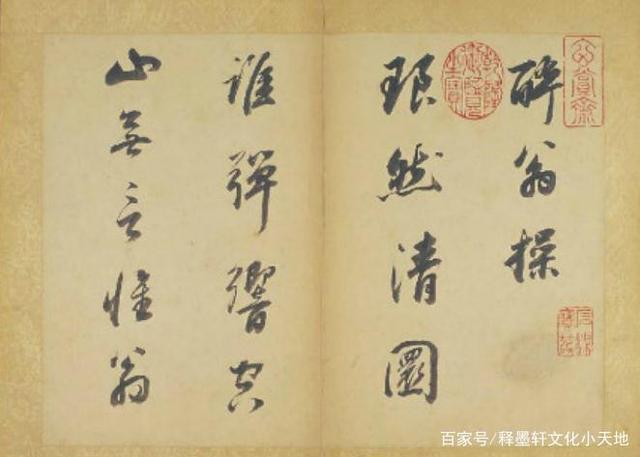 醉翁操
琅然清圜
誰彈響空
山無言惟翁
乾隆御覽之寶
百家号/释墨轩文化小天地